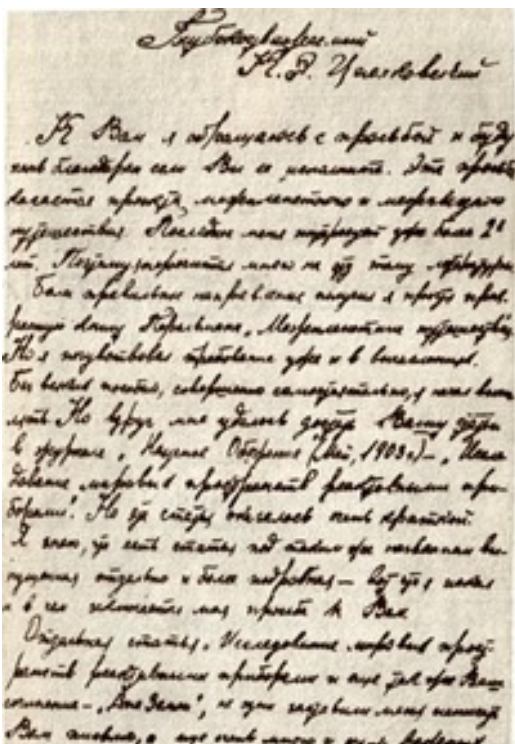 Глубокоуважаемый
К. Э. Циолковский
К Вам я обращаюсь с просьбой и буду
очень благодарен если Вы ее исполните. Эта просьба
касается проекта межпланетного и межзвездного
путешествия. Последнее меня интересует уже более 2х
лет. Поэтому перечитал много на эту тему литературы.
Более правильное направление получил я прочтя прек-
расную книгу Перельмана „Межпланетные путешествия“.
Но я почувствовал требование уже и в вычислениях.
Без всяких пособий, совершенно самостоятельно, я начал вычис-
лять. Но вдруг мне удалось достать Вашу статью
в журнале „Научное Обозрение“ (Май, 1903 г.) – „Иссле-
дование мировых пространств реактивными при-
борами“. Но эта статья оказалась очень краткой.
Я знаю, что есть статья под таким же названием вы-
пущенная отдельно и более подробная – вот что я искал
и в чем заключается моя просьба к Вам.
Отдельная статья „Исследование мировых прост-
ранств реактивными приборами“ и еще также Ваше
сочинение – „Вне Земли“, не одни заставили меня написать
Вам письмо, а еще очень много и очень важных